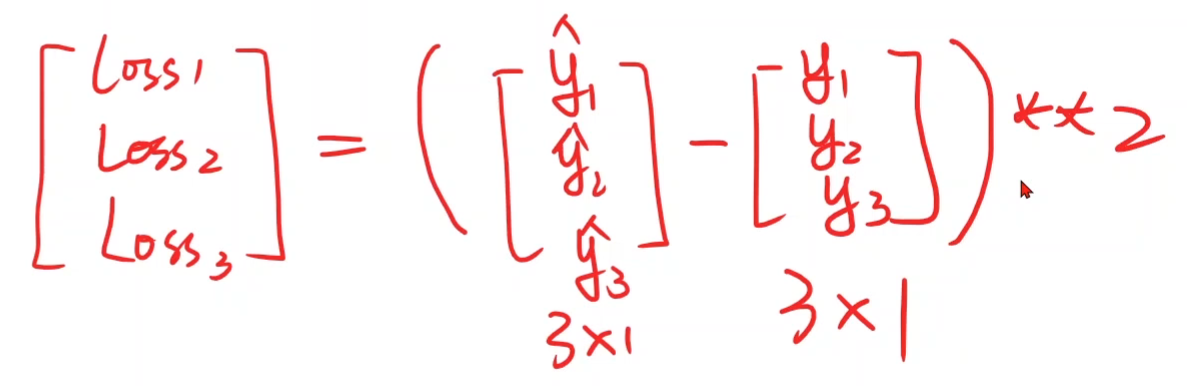 [Loss1 Loss2 Loss3] = ([ŷ1 ŷ2 ŷ3] - [y1 y2 y3]) **2
3×1 3×1